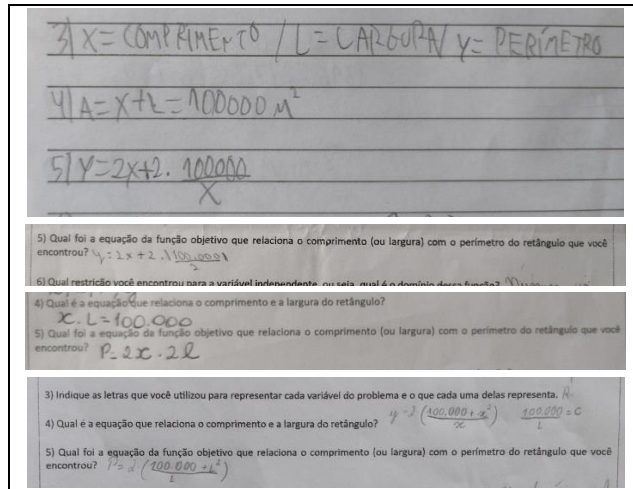 3) X = COMPRIMENTO / L = LARGURA / Y = PERÍMETRO
4) A = X + L = 100000 M²
5) Y = 2X + 2 . 100000 / X
5) Qual foi a equação da função objetivo que relaciona o comprimento (ou largura) com o perímetro do retângulo que você
encontrou? y = 2x + 2 . (100.000) / 2
6) Qual restrição você encontrou para a variável independente, ou seja, qual é o domínio dessa função?
4) Qual é a equação que relaciona o comprimento e a largura do retângulo?
x . L = 100.000
5) Qual foi a equação da função objetivo que relaciona o comprimento (ou largura) com o perímetro do retângulo que você
encontrou? P = 2x . 2l
3) Indique as letras que você utilizou para representar cada variável do problema e o que cada uma delas representa.
4) Qual é a equação que relaciona o comprimento e a largura do retângulo? y = 2 (100.000 + x² / x) 100.000 / L = C
5) Qual foi a equação da função objetivo que relaciona o comprimento (ou largura) com o perímetro do retângulo que você
encontrou? P = 2 (100.000 + L² / L)